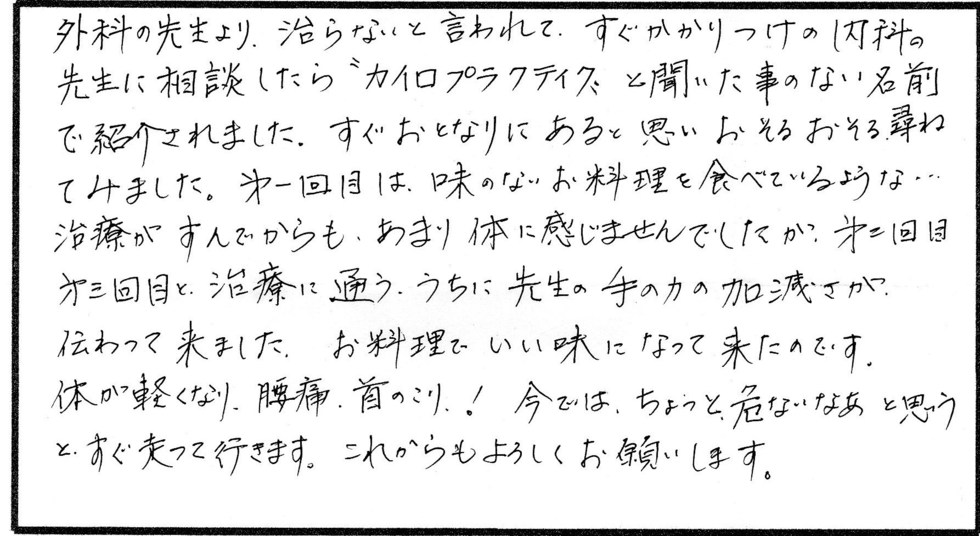 外科の先生より、治らないと言われて、すぐかかりつけの内科の
先生に相談したら〝カイロプラクティク〟と聞いた事のない名前
で紹介されました。すぐおとなりにあると思いおそるおそる尋ね
てみました。第一回目は、味のないお料理を食べているような…
治療がすんでからも、あまり体に感じませんでしたが、第二回目
第三回目と、治療に通う、うちに先生の手の力の加減さが、
伝わって来ました。お料理でいい味になって来たのです。
体が軽くなり、腰痛、首のこり、！今では、ちょっと、危ないなあと思う
と、すぐ走って行きます。これからもよろしくお願いします。